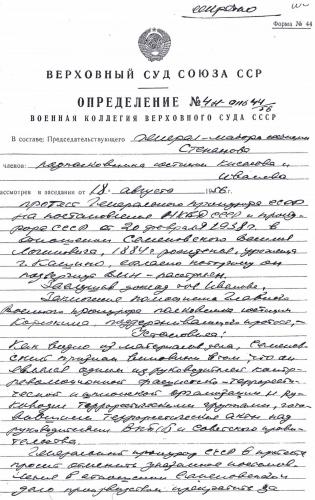 Форма № 44
ВЕРХОВНЫЙ СУД СОЮЗА ССР
ОПРЕДЕЛЕНИЕ №
ВОЕННАЯ КОЛЛЕГИЯ ВЕРХОВНОГО СУДА СССР
В составе: Председательствующего генерал-майора юстиции
Степанова
членов: подполковника юстиции и
Иванова
рассмотрев в заседании от 18 августа 1956 г.
протест Генерального прокурора СССР
на постановление НКВД СССР и проку-
рора СССР от 20 февраля 1938 г. в
отношении Семеновского
1884 г. рождения, уроженца
г. Кашина, согласно которому он
подвергнут ВМН – расстрелу.
Заслушав доклад тов Иванова,
Заключение помощника Главного
Военного прокурора полковника юстиции
поддерживающего протест, –
Установила:
Как видно из материалов дела, Семенов-
ский признан виновным в том, что он
являлся одним из руководителей контр-
революционной фашистско-террористи-
ческой и шпионской организации и ру-
ководил террористическими группами, гото-
вившими террористические акты над
руководителями ВКП/б и Советского прави-
тельства.
Генеральный прокурор СССР в протесте
просит отменить указанное постанов-
ление в отношении Семеновского и
дело производством прекратить за